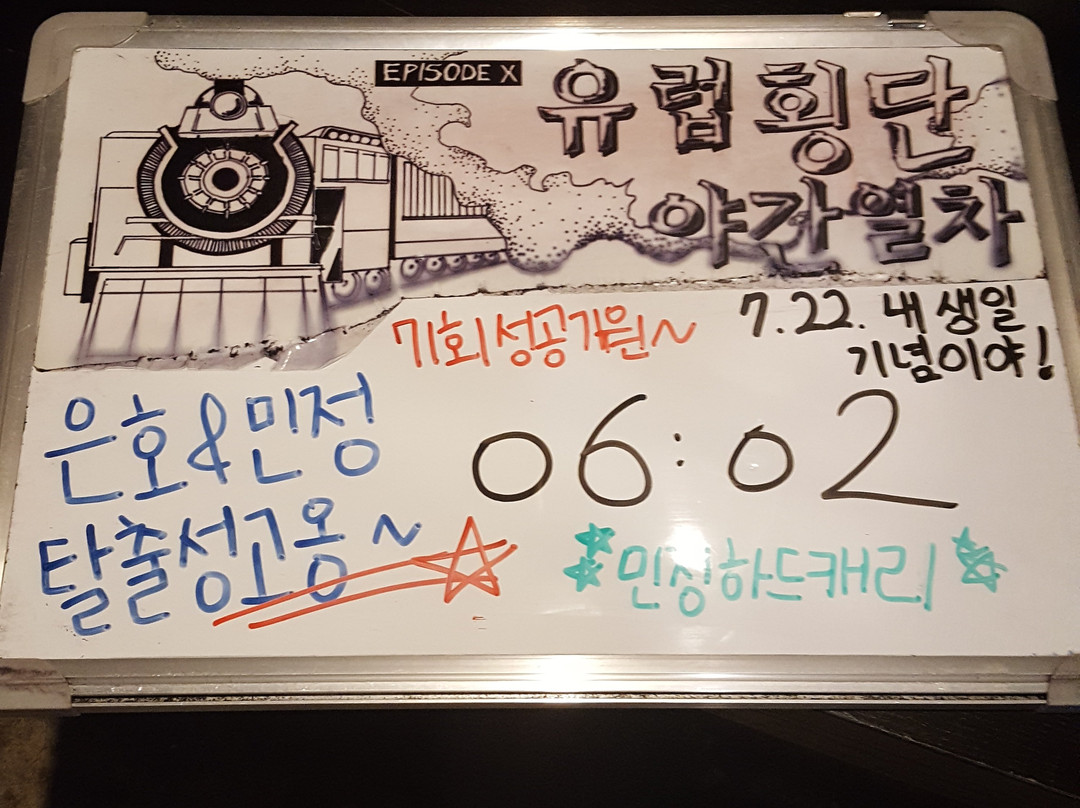 EPISODE X
유럽횡단
야간열차
기회성공기원~
7.22. 내 생일
기념이야!
은호&민정
06:02
탈출성고옹~
민정하드캐리